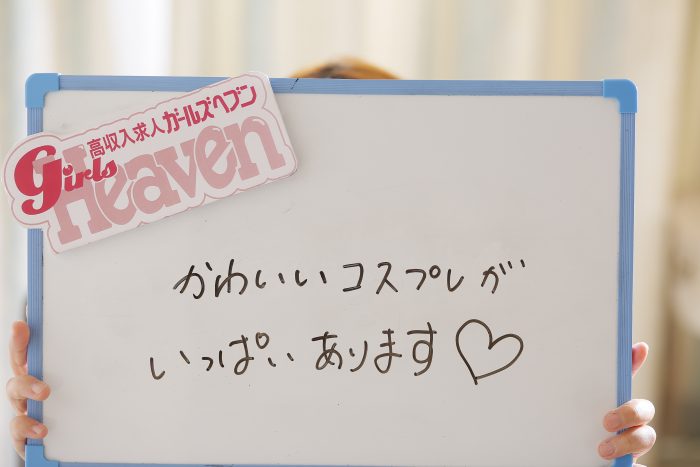 高収入求人ガールズヘブン
Girls
Heaven
かわいいコスプレが
いっぱいあります♡